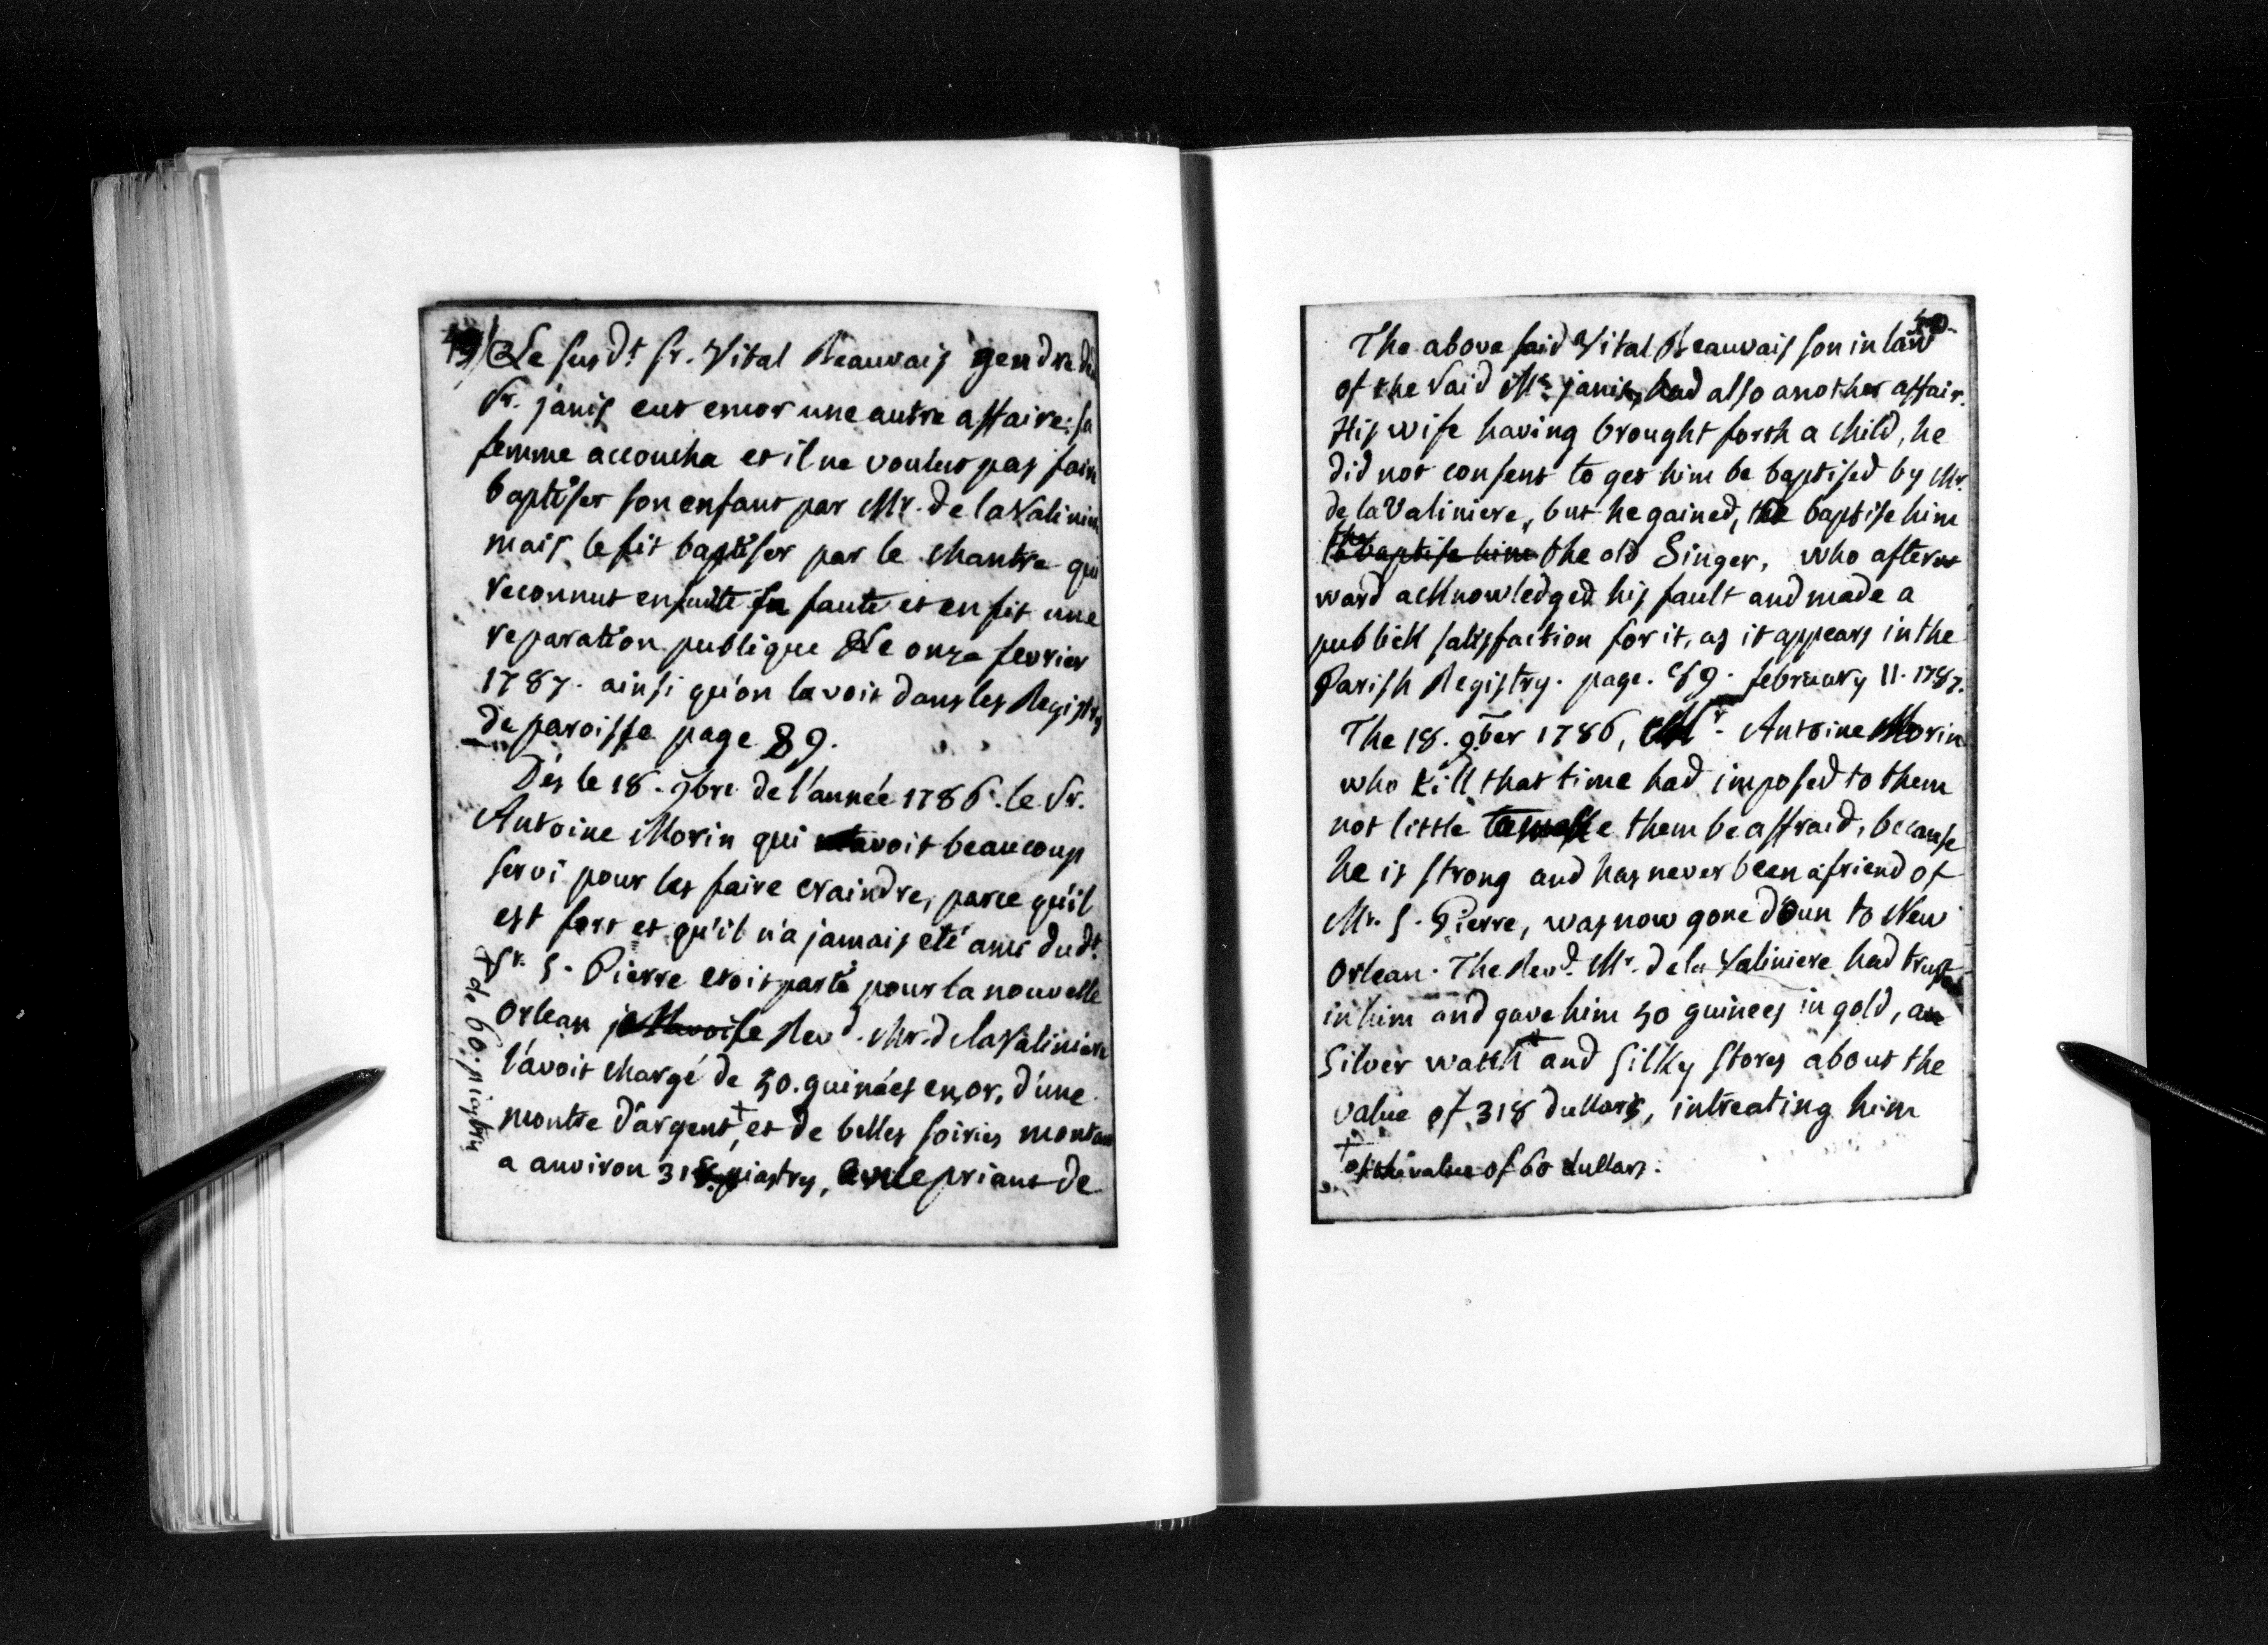 49/ Le susdt. sr. Vital Beauvais gendre du
Sr. janis eut encor une autre affaire: sa
femme accoucha et il ne voulut pas faire
baptiser son enfant par Mr. de la Valiniere
mais le fit baptiser par le chantre qui
reconnut ensuite sa faute et en fit une
reparation publique Le onze fevrier
1787. ainsi qu'on le voit dans les Registres
de paroisse page 89.
Dés le 18. 9bre de l'année 1786. le Sr.
Antoine Morin qui avoit beaucoup
servi pour les faire craindre, parce qu'il
est fort et qu'il n'a jamais eté ami dudt.
Sr. S. Pierre etoit parti pour la nouvelle
Orlean je l'avois le Revd. Mr. de la Valiniere
l'avoit chargé de 50. guinées en or, d'une
montre d'argent + et de belles soiries montant
a anviron 318. piastres, en le priant de
+ de 60. piastres
50
The above said Vital Beauvais son in law
of the said Mr. janis, had also another affair.
His wife having brought forth a child, he
did not consent to get him be baptised by Mr.
de la Valiniere, but he gained, to baptise him
the
to baptise him the old Singer, who after
ward acknowledged his fault and made a
publick satisfaction for it, as it appears in the
Parish Registry. page. 89. february 11. 1787.
The 18. 9ber 1786, Mr. Antoine Morin
who till that time had imposed to them
not little to make them be affraid, because
he is strong and has never been a friend of
Mr. S. Pierre, was now gone doun to New
Orlean. The Revd. Mr. de la Valiniere had trusted
in him and gave him 50 guinees in gold, a
Silver watch + and Silky stores about the
value of 318 dullars, intreating him
+ of the value of 60 dullars.